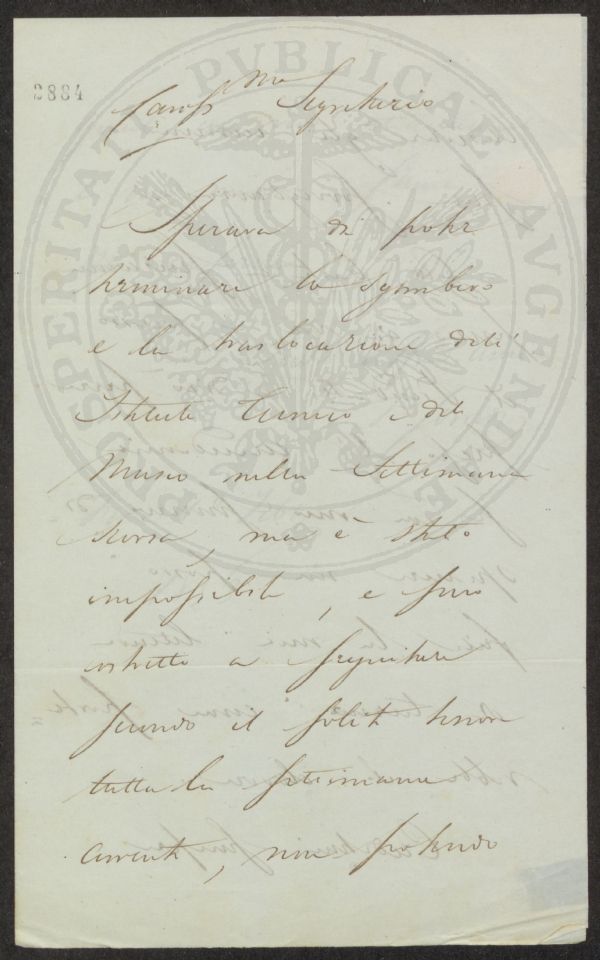 2884
Cariss.mo Segretario
Sperava di poter
terminare lo sgombero
e la traslocazione dell'
Istituto Tecnico e del
Museo nella Settimana
scorsa, ma è stato
impossibile, e sono
costretto a seguitare
secondo il solito tenore
tutta la settimana
corrente, non potendo
PROSPERITATI PVBLICAE AVGENDAE